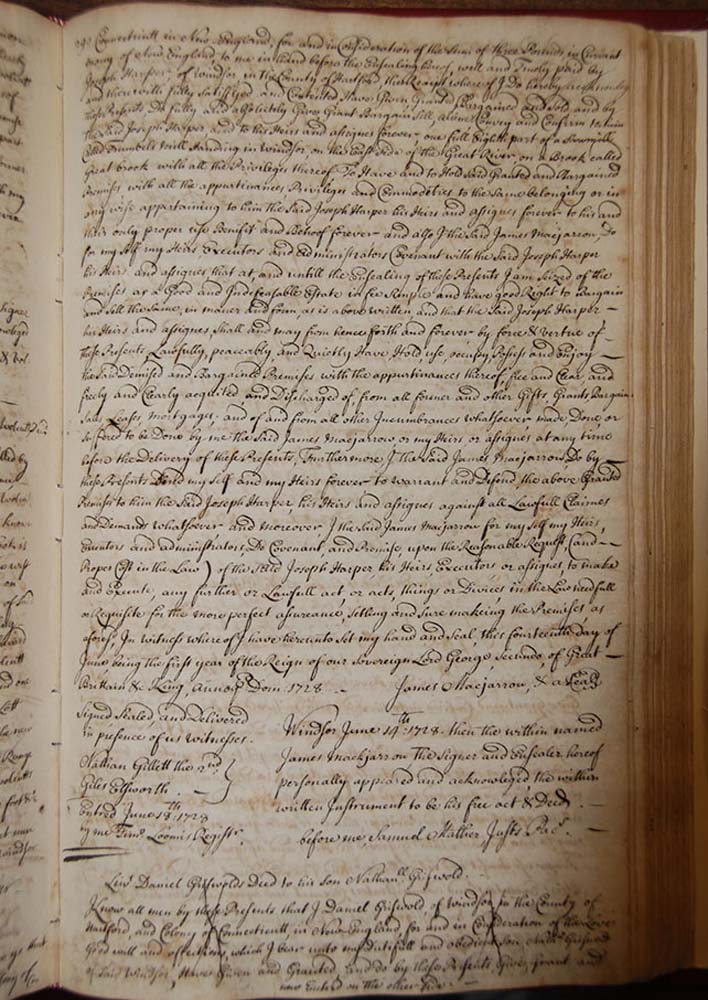 Connecticutt in New-England, for and in Consideration of the Sum of three Pounds in Currant
mony of New England to me in hand before the Ensealing hereof, well and Truly paid by
Joseph Harper, of windsor in the County of Hartford the Receipt whereof I Do hereby acknowledg
and therewith fully Satisfied and Contented Have Given Granted Bargained and Sold and by
these Presents Do fully and absolutely Give Grant Bargain Sell, aliene Convey and Confirm to him
the Said Joseph Harper, and to his Heirs and assignes Forever one full Eighth part of a Sawmill
Called Trumbels Mill Standing in Windsor, on the East Side of the Great River, on a Brook called
Great brook with all the Privileges thereof To Have and to Hold Said Granted and Bargained
Premises with all the appurtinances Privileges and Commodeties to the Same belonging or in
any wise appertaining to him the Said Joseph Harper his Heirs and assignes forever to his and
their only proper use Benifit and Behoof forever and also I the Said James Macjarrow, Do
for my Self my Heirs Executors and administrators Covenant with the Said Joseph Harper
his Heirs and assignes that at, and untill the Ensealing of these Presents I am Seized of the
Premises as a Good and Indefeasable Estate in fee Simple and have good Right to Bargain
and Sell the Same, in maner and form, as is above written, and that the Said Joseph Harper —
his Heirs and assignes, Shall and may from hence forth and forever by force & vertue of —
these Presents Lawfully, peaceably, and Quietly Have, Hold use, occupy Posess and Enjoy —
the Said Demised and Bargained Premises with the appurtinances thereof, free and Clear, and
freely and Clearly acquited and Discharged of, from all former and other Gifts, Grants Bargain
Sales Leases, mortgages, and of and from all other Incumbrances whatsoever made, Done or
Suffered to be Done by me the Said James Macjarrow or my Heirs or assignes at any time
before the Delivery of these Presents, Furthermore I the Said James Macjarrow, Do by —
these Presents Bind my Self and my Heirs forever to warrant and Defend the above Granted
Premises to him the Said Joseph Harper, his Heirs and assignes against all Lawfull Claimes
and Demands whatsoever and moreover, I the Said James Macjarrow for my Self my Heirs,
Executors and administrators, Do Covenant, and Promise, upon the Reasonable Request (and —
Proper Cost in the Law) of the Said Joseph Harper, his Heirs Executors or assignes, to make
and Execute, any further or Lawfull act or acts, things or Divices in the Law needfull
or Requisite for the more perfect assureance, Setling and Sure makeing the Premises as
afores. In witness whereof I have hereunto Set my hand and Seal, this fourteenth, Day of
June being the first year of the Reign of our Sovereign Lord George Secundo, of Great —
Britain & King, Annoq Dom: 1728. — James Macjarrow, & a Seal
Signed Sealed, and Delivered
in presence of us witnesses.
Nathan Gillett the 2nd
Giles Elsworth. —
Entred June 18th 1728
by me Timo Loomis Registr.
Windsor June 14th 1728. then the within named
James Mackjarron The Signer and Ensealer hereof
personally appeared and acknowleged, the within
written Instrument to be his free act & Deed. —
before me Samuel Mather Justs Pac. —
Liut Daniel Griswolds Deed to his son Nathanll Griswold.
Know all men by these Presents that I Daniel Griswold, of windsor in the County of
Hartford, and Colony of Connecticutt, in New England, for and in Consideration of the Love
Good will and affections, which I bear unto my Dutifull and obedient son Nathll Griswold
of Said Windsor, Have Given and Granted and do by these Presents, Give, grant and
now Entred on the other Side. —